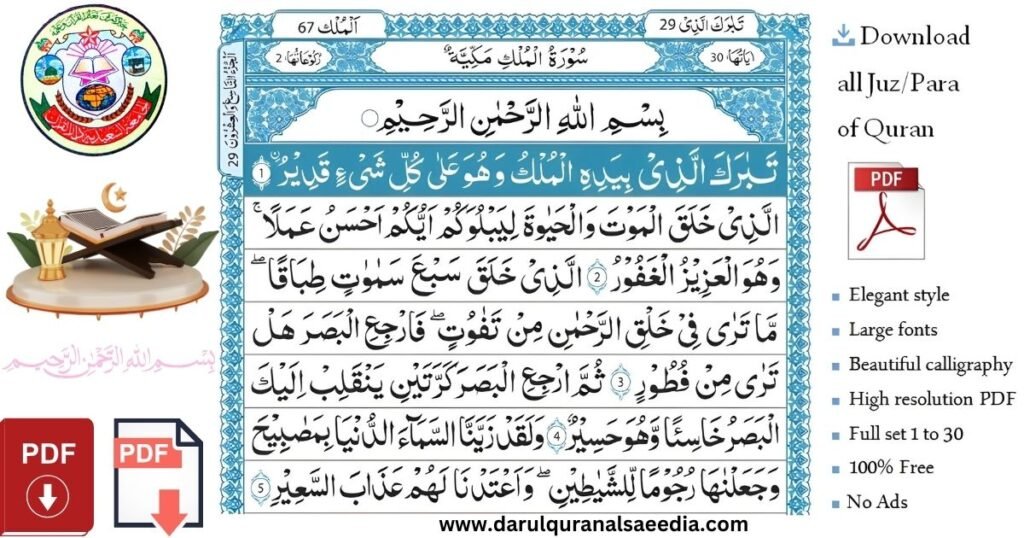 اَلْمُلْك 67
تَبٰرَكَ الَّذِیْ 29
اٰیَاتُهَا 30
سُوْرَةُ الْمُلْكِ مَكِّیَّةٌ
رُكُوْعَاتُهَا 2
اَلْجُزْءُ التَّاسِعُ وَالْعِشْرُوْنَ 29
بِسْمِ اللّٰهِ الرَّحْمٰنِ الرَّحِیْمِ
تَبٰرَكَ الَّذِیْ بِیَدِهِ الْمُلْكُ وَهُوَ عَلٰى كُلِّ شَیْءٍ قَدِیْرُ ۙ 1
الَّذِیْ خَلَقَ الْمَوْتَ وَالْحَیٰوةَ لِیَبْلُوَكُمْ اَیُّكُمْ اَحْسَنُ عَمَلًا ؕ
وَهُوَ الْعَزِیْزُ الْغَفُوْرُ 2 الَّذِیْ خَلَقَ سَبْعَ سَمٰوٰتٍ طِبَاقًا ؕ
مَا تَرٰى فِیْ خَلْقِ الرَّحْمٰنِ مِنْ تَفٰوُتٍ ؕ فَارْجِعِ الْبَصَرَ هَلْ
تَرٰى مِنْ فُطُوْرٍ 3 ثُمَّ ارْجِعِ الْبَصَرَ كَرَّتَیْنِ یَنْقَلِبْ اِلَیْكَ
الْبَصَرُ خَاسِئًا وَّهُوَ حَسِیْرٌ 4 وَلَقَدْ زَیَّنَّا السَّمَآءَ الدُّنْیَا بِمَصَابِیْحَ
وَجَعَلْنٰهَا رُجُوْمًا لِّلشَّیٰطِیْنِ وَاَعْتَدْنَا لَهُمْ عَذَابَ السَّعِیْرِ 5
www.darulquranalsaeedia.com
بِسْمِ اللهِ الرَّحْمٰنِ الرَّحِيْمِ
PDF
PDF
Download
all Juz/Para
of Quran
PDF
Elegant style
Large fonts
Beautiful calligraphy
High resolution PDF
Full set 1 to 30
100% Free
No Ads